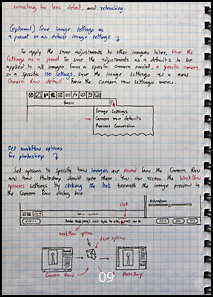 correcting for lens defect, and retouching.
(Optional) Save image settings as
a preset or as default image settings
To apply the same adjustments to other images later, save the
settings as a preset. To save the adjustments as defaults to be
applied to all images from a specific camera model, a specific camera
or a specific ISO settings, save the image settings as a new
Camera Raw default from the Camera raw settings menu.
Basic
Image Settings
Camera raw Defaults
Previous Conversion
Set workflow options
for photoshop
Set options to specify how images are saved from the Camera Raw
and how Photoshop should open them. You can access the Workflow
options settings by clicking the link beneath the image preview in
the Camera Raw dialog box.
click
workflow options
Save options
Camera Raw
Photoshop
09